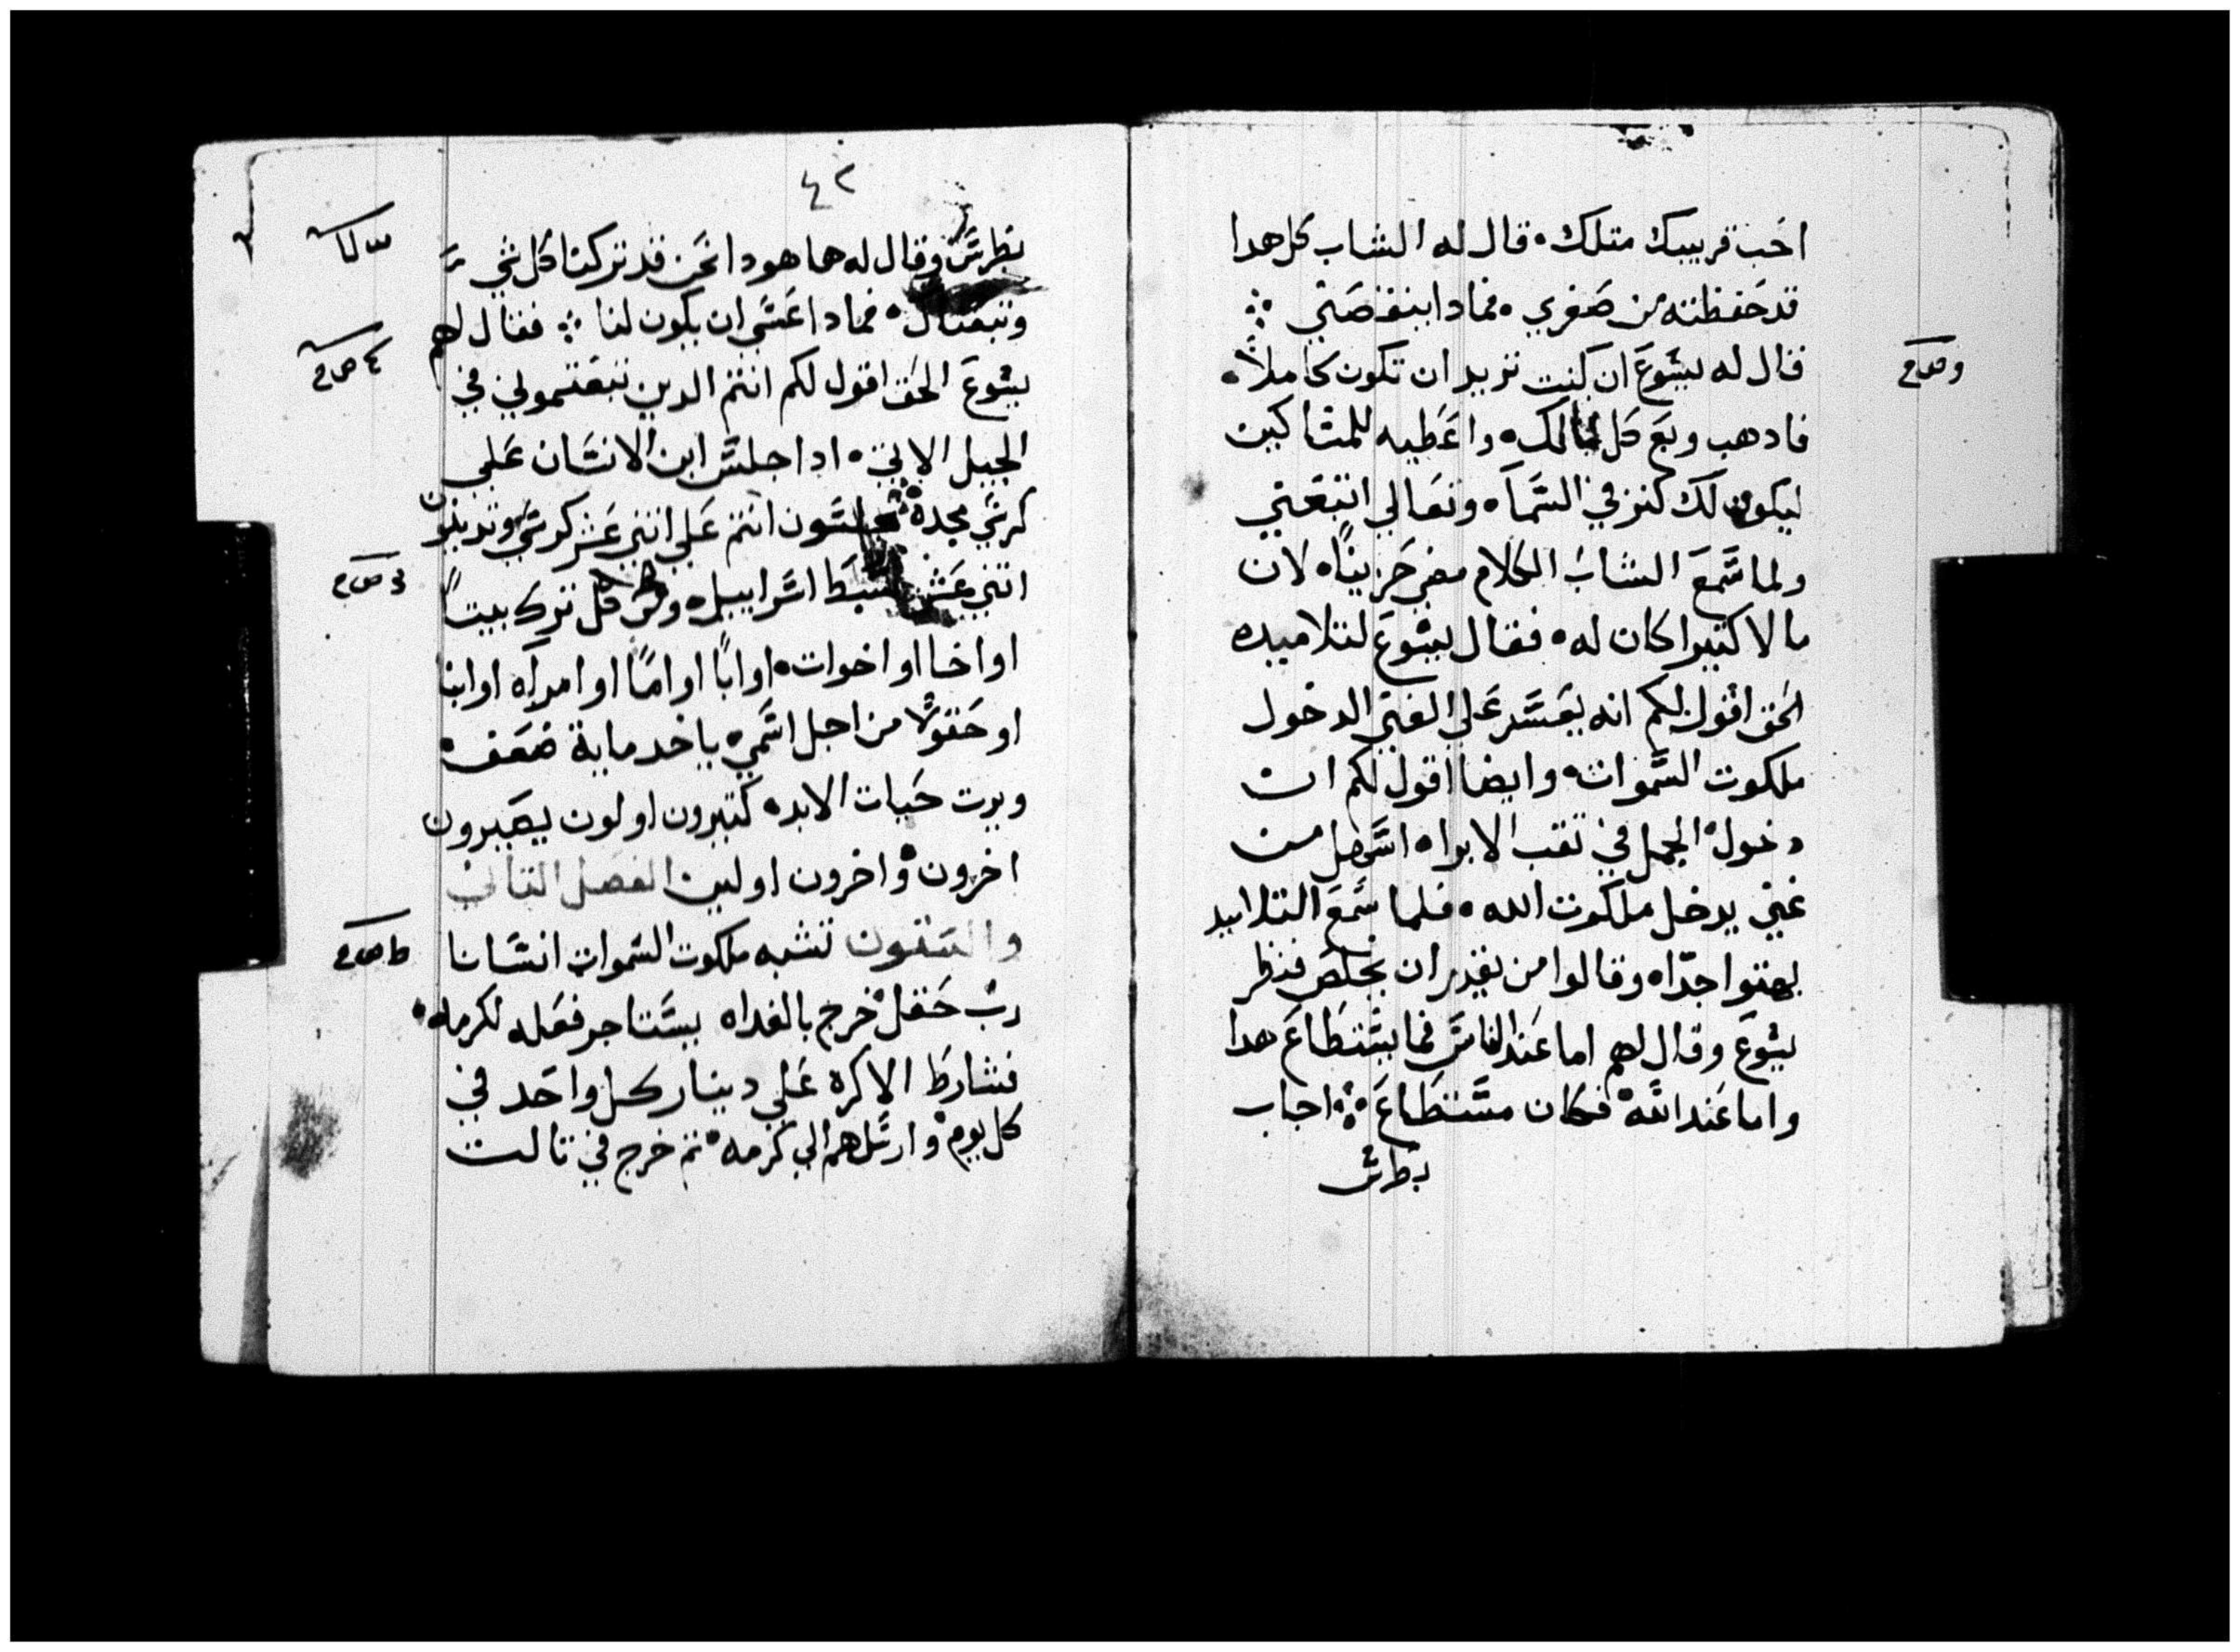 احب قريبك متلك. قال له الشاب كل هدا
قد حفظته من صغري. فمادا ينقصني
قال له يسوع ان كنت تريد ان تكون كاملاً.
فادهب وبع كل مالك. واعطيه للمساكين
ليكون لك كنز في السماه وتعالي اتبعني
ولما سمع الشاب الكلام مضي حزيناً. لان
مالا كتيرا كان له. فقال يسوع لتلاميده
الحق اقول لكم انه يعسر علي الغني الدخول
ملكوت السموات. وايضا اقول لكم ان
دخول الجمل في تقب الابراه اسهل من
غني يدخل ملكوت الله. فلما سمع التلاميد
بهتوا جدّاه وقالوا من يقدر ان يخلص فنظر
يسوع وقال لهم اما عند الناس فما يستطاع هدا
واما عند الله فكان مستطاع. اجاب
بطرس
وص م
٤٢
بطرس وقال له ها هودا نحن قد تركنا كل شي
وتبعناك. فمادا عسي ان يكون لنا فقال لهم
يسوع الحق اقول لكم انتم الدين تبعتموني في
الجيل الاتي. ادا جلس ابن الانسان علي
كرسي مجده تجلسون انتم علي اتني عشر كرسي وتدينون
اتني عشر سبط اسراييل. وكل من ترك بيتاً
او اخا او اخوات. او اباً او امًا او امراه او ابنا
او حقولاً من اجل اسمي. ياخد ماية ضعف.
ويرت حيات الابد. كتيرون اولون يصيرون
اخرون. واخرون اولين الفصل التاني
والستون تشبه ملكوت السموات انسانا
رب حقل خرج بالغداه يستاجر فعله لكرمه.
فشارط الاكره علي دينار كل واحد في
كل يوم. وارسلهم الي كرمه. تم خرج في تالت